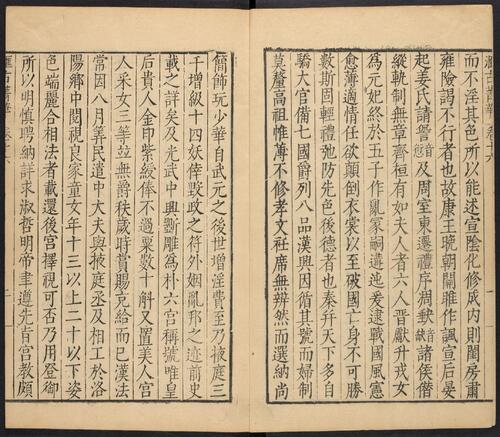 而不淫其色所以能述宣陰化修成内則閨房肅
雍險謁不行者也故康王晚朝關雎作諷宣后晏
起姜氏請及周室東遷禮序凋諸侯僭
縱軌制無章齊桓有如夫人者六人晉獻升戎女
為元妃終於五子作亂冢嗣遘迍爰逮戰國風憲
愈薄適情任欲顛倒衣裳以至破國亡身不可勝
數斯固輕禮弛防先色後德者也秦并天下多自
驕大宮備七國爵列八品漢興因循其號而婦制
莫釐高祖帷薄不修孝文衽席無辨然而選納尚
簡飾玩少華自武元之後世增淫費至乃掖庭三
千增級十四妖倖毀政之符外姻亂邦之迹前史
載之詳矣及光武中興斲雕為朴六宮稱號唯皇
后貴人金印紫綬俸不過粟數十斛又置美人宮
人采女三等並無爵秩歲時賞賜充給而已漢法
常因八月筭民遣中大夫與掖庭丞及相工於洛
陽鄉中閱視良家童女年十三以上二十以下姿
色端麗合相法者載還後宮擇視可否乃用登御
所以明慎聘納詳求淑哲明帝聿遵先旨宮教頗